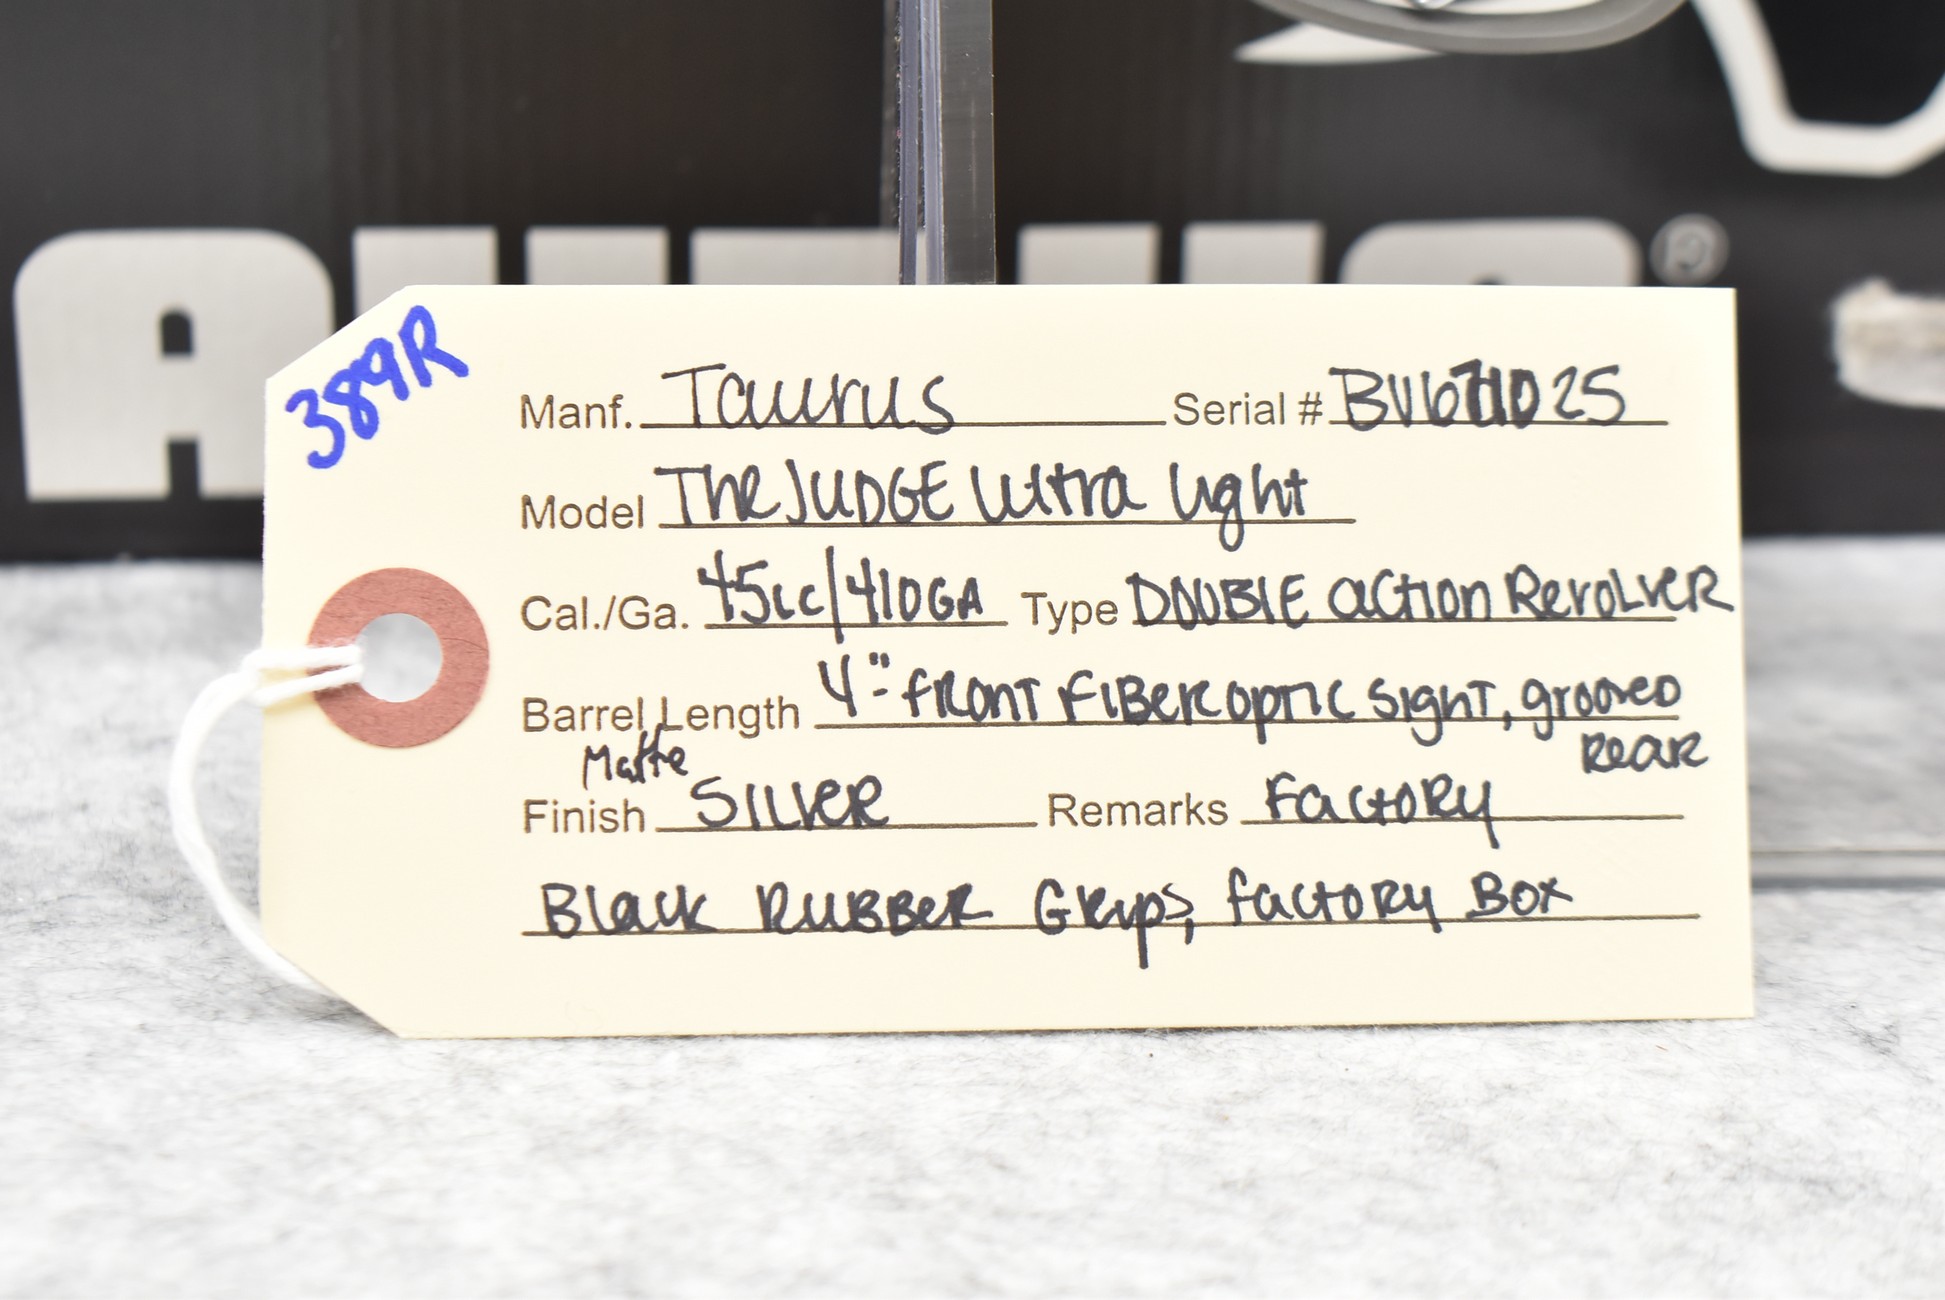 AURUS®
389R
Manf. Taurus Serial #
Model The JUDGE Ultra Light
Cal./Ga. 45LC/410GA Type DOUBLE action Revolver
Barrel Length 4"- front Fiber optic Sight, grooved
Rear
Matte
Finish SILVER Remarks Factory
Black Rubber Grips, factory Box